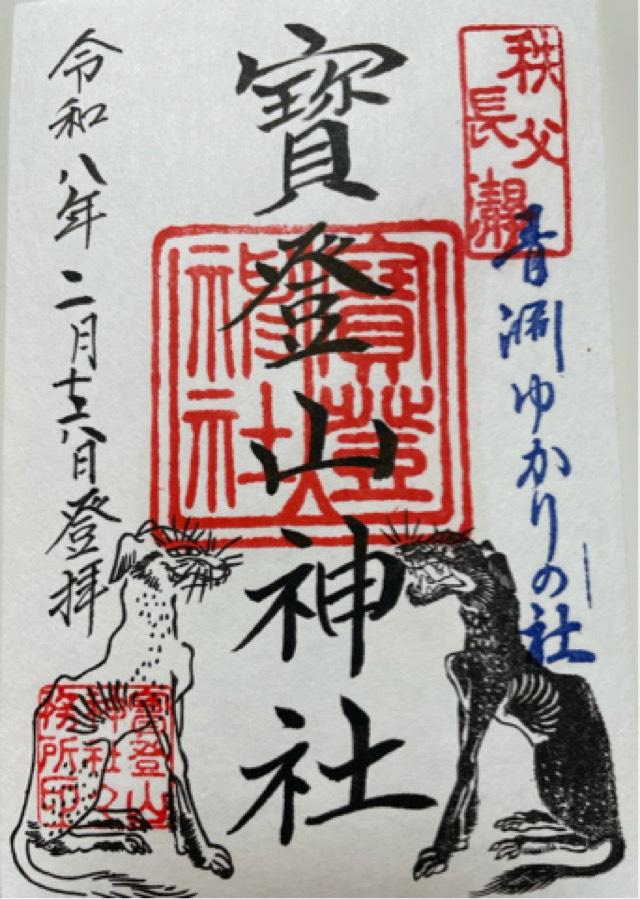 秩父
長瀞
青淵ゆかりの社
寶登山神社
寶登山
神社
令和八年二月十六日登拝
寶登山
神社々
務所印